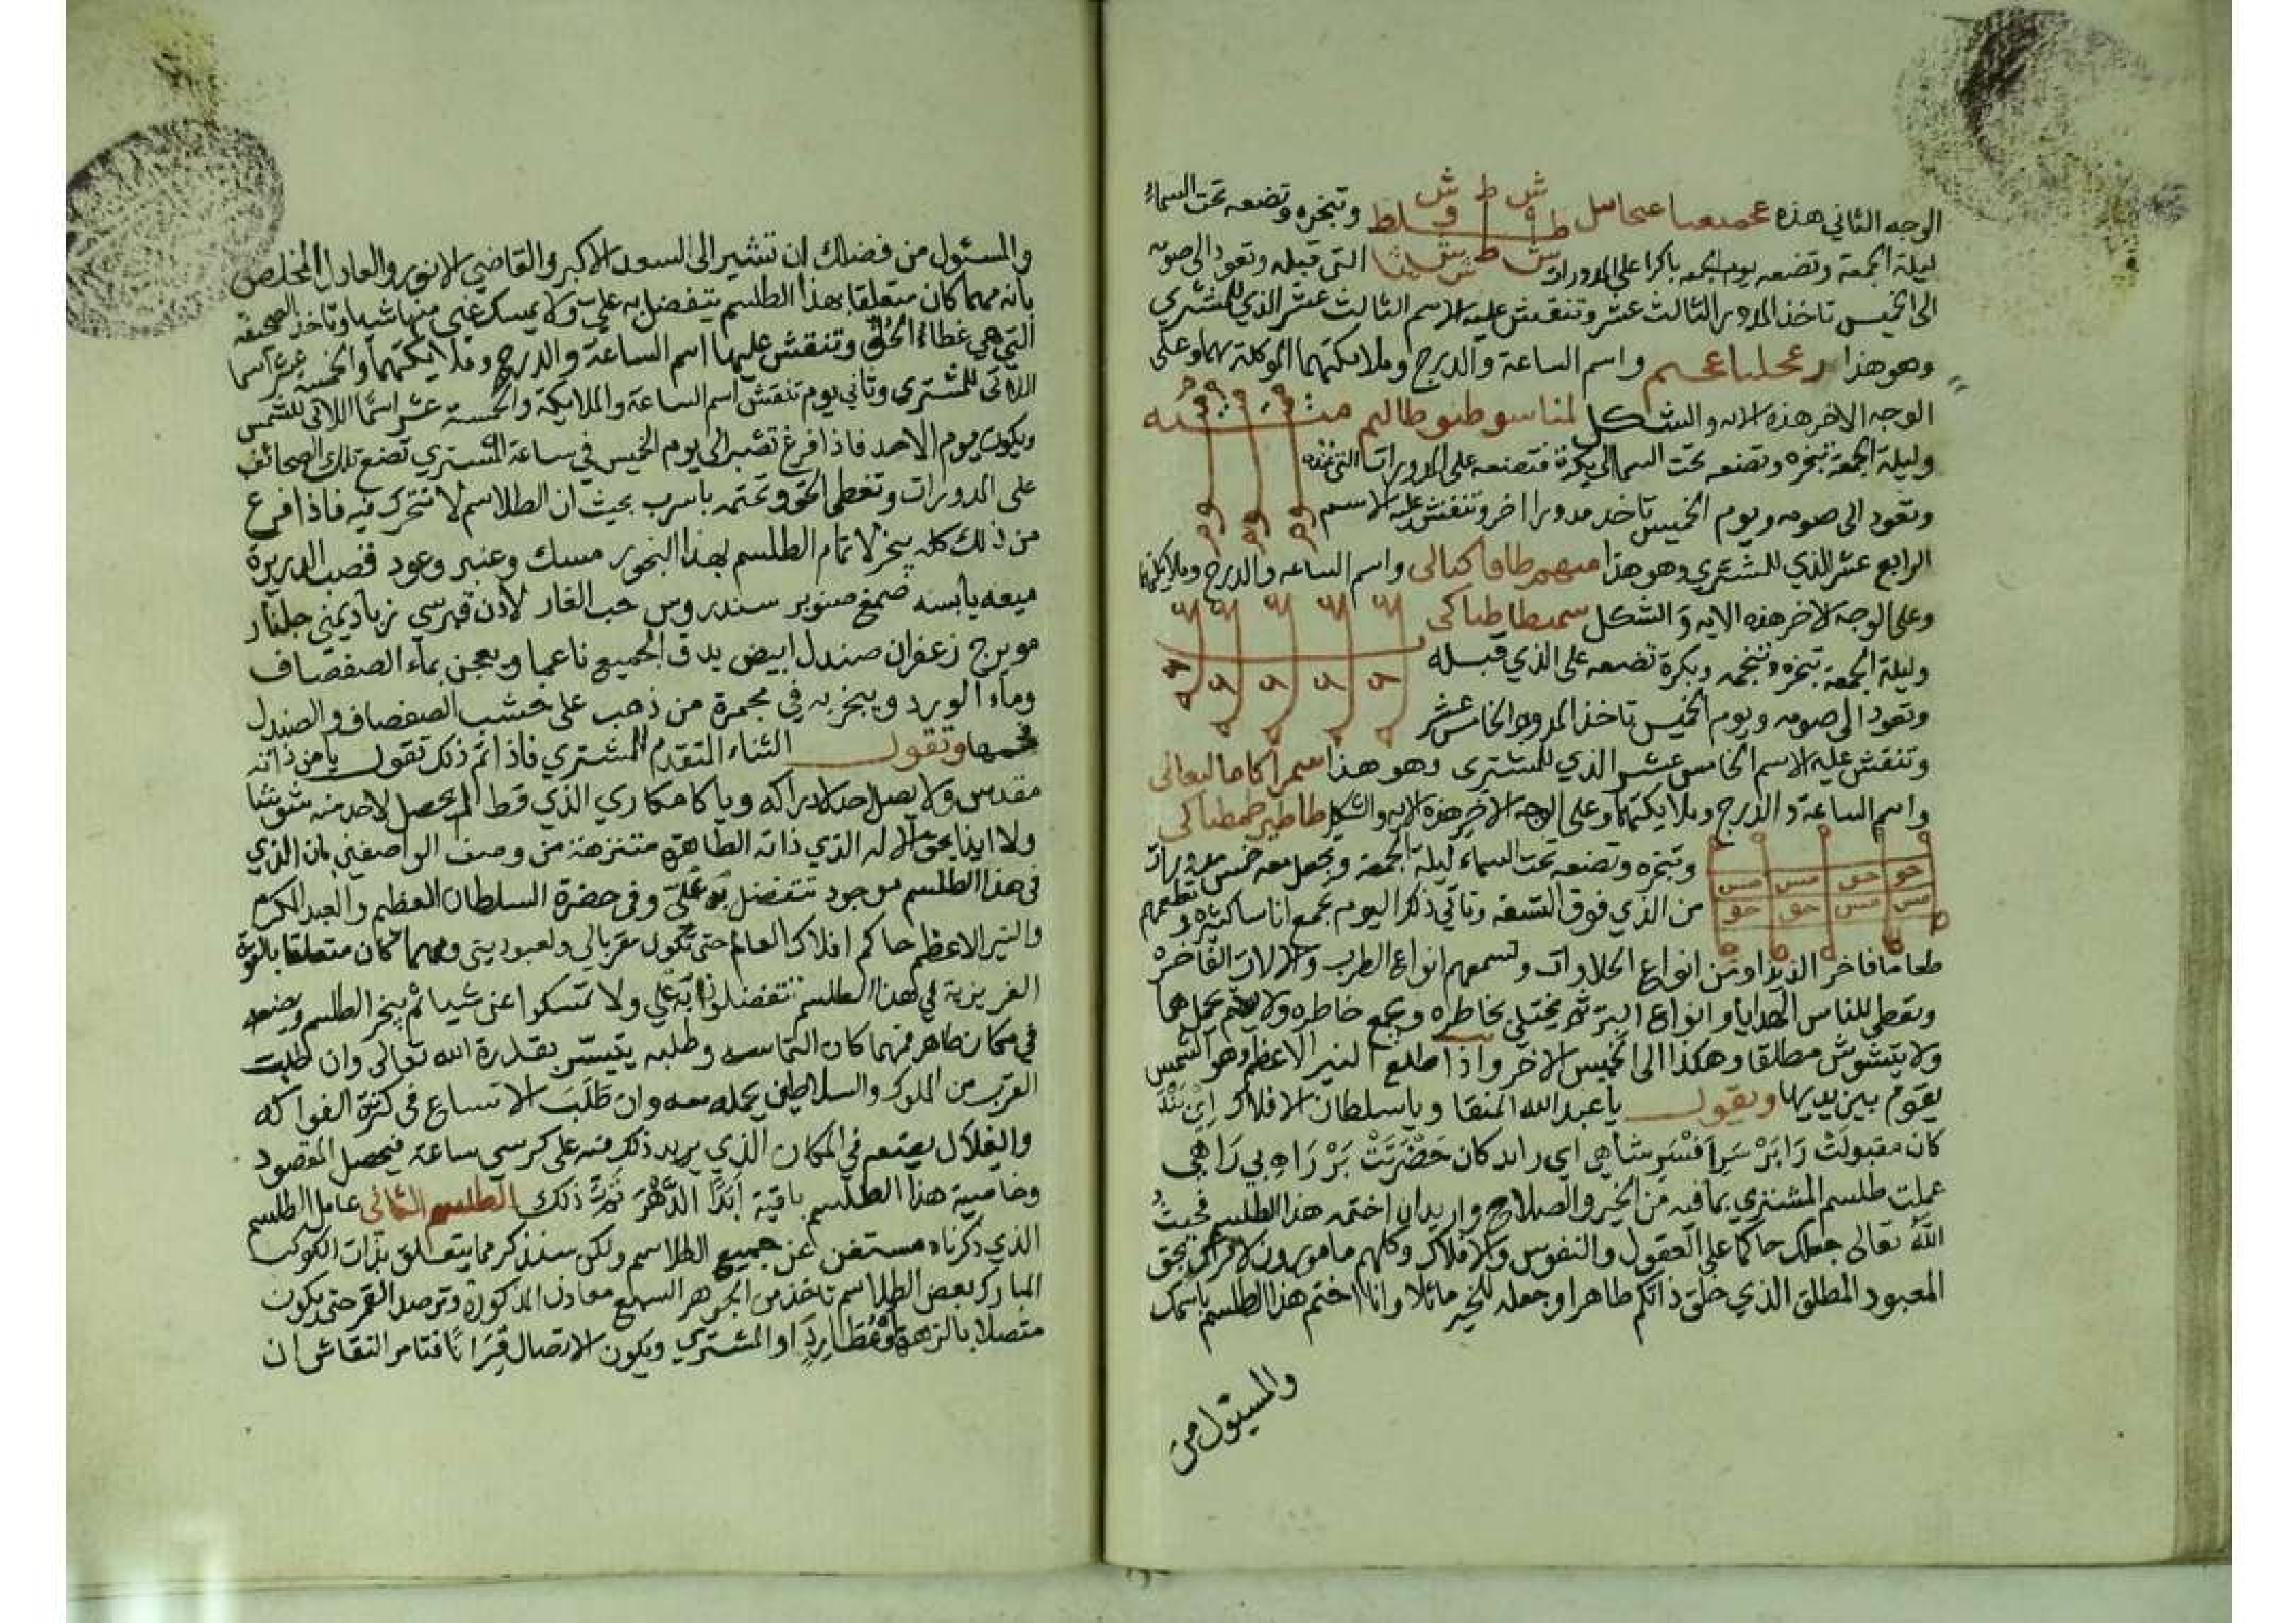 الوجه الثاني هذه وتبخره وتضعه تحت السماء
ليلة الجمعة وتضعه يوم الجمعه باكرا على المدورات التي قبله وتعود الى صومه
الى الخميس تاخذ المدور الثالث عشر وتنقش عليه الاسم الثالث عشر الذي للمشتري
وهو هذا واسم الساعة والدرج وملايكتهما الموكلة بهما وعلى
الوجه الاخر هذه الايه والشكل
وليلة الجمعة تبخره وتضعه تحت السما الى بكرة فتضعه على المدورات التي
وتعود الى صومه ويوم الخميس تاخد مدورا اخر وتنقش عليه الاسم
الرابع عشر الذي للمشتري وهو هذا واسم الساعه والدرج وملايكتهما
وعلى الوجه الاخر هذه الايه والشكل
وليلة الجمعة تبخره وتنجمه وبكرة تضعه على الذي قبله
وتعود الى صومه ويوم الخميس تاخذ المدور الخامس عشر
وتنقش عليه الاسم الخامس عشر الذي للمشترى وهو هذا
واسم الساعة والدرج وملايكتهما وعلى الوجه الاخر هذه الايه والشكل
وتبخره وتضعه تحت السماء ليلة الجمعة وتجعل معه خمس مدورات
من الذي فوق التسعه وتاتي ذكر اليوم تجمع اناسا كثيره وتطعمهم
طعاما فاخر الذيذا ومن انواع الحلاوات وتسمعهم انواع الطرب والالات الفاخره
وتعطي للناس الهدايا وانواع البر ثم يختلي بخاطره ويجمع خاطره ولا يهتم يحمل هما
ولا يتشوش مطلقا وهكذا الى الخميس الاخر واذا طلع النير الاعظم وهو الشمس
يقوم بين يديها ويقول يا عبد الله المنقا ويا سلطان الافلاك
كان مقبولت را بر سر افسر شاهى اى راند كان حضرتت بر راه بي راهي
عملت طلسم المشتري بما فيه من الخير والصلاح واريد ان اختمه هذا الطلسم فحيث
الله تعالى جعلك حاكما على العقول والنفوس والافلاك وكلهم مامورون لامرك بحق
المعبود المطلق الذي خلق ذاتكم طاهرا وجعله للخير مائلا وانا اختم هذا الطلسم باسمك
والمسئول من
والمسئول من فضلك ان تشير الى السعد الاكبر والقاضي الانور والعادل المخلص
بانه مهما كان متعلقا بهذا الطلسم يتفضل به علي ولا يمسك عني منها شيا وتاخذ الصحيفة
التي هي غطاء الحق وتنقش عليها اسم الساعة والدرج وملايكتهما والخمسة عشر اسما
اللاتى للمشترى وثاني يوم تنقش اسم الساعة والملايكة والخمسة عشر اسما اللاتى للشمس
ويكون يوم الاحد فاذا فرغ تصبر الى يوم الخميس في ساعة المشتري تضع تلك الصحائف
على المدورات وتغطي الحق وتختمه باسرب بحيث ان الطلاسم لا تتحرك فيه فاذا فرغ
من ذلك كله يبخر لاتمام الطلسم بهذا البخور مسك وعنبر وعود قصب الدريرة
ميعه يابسه صمغ صنوبر سندروس حب الغار لادن قبرسي زباد يمني جلنار
مويزج زعفران صندل ابيض يدق الجميع ناعما ويعجن بماء الصفصاف
وماء الورد ويبخر به في مجمرة من ذهب على خشب الصفصاف والصندل
وتقول الثناء المتقدم للمشتري فاذا تم ذلك تقول يا من ذاته
مقدس ولا يصل احد لادراكه ويا كامكاري الذي قط لم يحصل لاحد منه تشويشا
ولا ايذا بحق الاله الذي ذاته الطاهرة متنزهة من وصف الواصفين بان الذي
فى هذا الطلسم موجود تتفضل به علي وفى حضرة السلطان العظيم والعبد الكريم
والنير الاعظم حاكم افلاك العالم حتى يكون مقربا لي ولعبوديتى ومهما كان متعلقا بالقوة
الغريزية في هذا الطلسم تتفضلوا به علي ولا تمسكوا عنى شيا ثم يبخر الطلسم ويضعه
في مكان طاهر فمهما كان التماسه وطلبه يتيسر بقدرة الله تعالى وان طلبت
القرب من الملوك والسلاطين يحمله معه وان طلب الاتساع فى كثرة الفواكه
والغلال يضعه في المكان الذي يريد ذلك منه على كرسي ساعة فيحصل المقصود
وخاصية هذا الطلسم باقية ابدا الدهر ثمت ذلك الطلسم الثاني عامل الطلسم
الذي ذكرناه مستغن عن جميع الطلاسم ولكن سنذكر مما يتعلق بذات الكوكب
المبارك بعض الطلاسم تاخذ من الجوهر السبع معادن المذكورة وترصد القمر حتى يكون
متصلا بالزهرة او عطارد او المشتري ويكون الاتصال قرانا فتامر النقاش ان